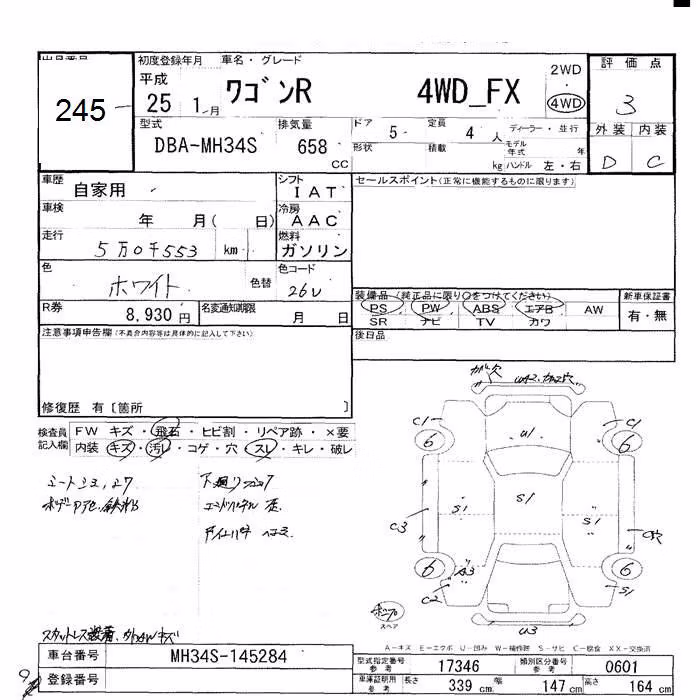 出品番号
245
初度登録年月
平成
25 1月
車名・グレード
ワゴンR 4WD_FX
2WD
4WD
評価点
3
外装 内装
D C
型式
DBA-MH34S
排気量
658 CC
ドア 5
定員 4人
ディーラー・並行
形状
積載 kg
モデル年式 年
ハンドル 左・右
車歴
自家用
シフト
IAT
車検
年 月( 日)
冷房
AAC
走行
5万0千553 km
燃料
ガソリン
色
ホワイト
色替
色コード
26U
R券
8,930円
名変通知期限
月 日
セールスポイント(正常に機能するものに限ります)
装備品(純正品に限り○をつけてください)
PS PW ABS エアB AW
SR ナビ TV カワ
新車保証書
有・無
後日品
注意事項申告欄(不具合内容等は具体的に記入して下さい)
修復歴 有〔箇所 〕
検査員記入欄
FW キズ・飛石・ヒビ割・リペア跡・×要
内装 キズ・汚レ・コゲ・穴・スレ・キレ・破レ
下廻り
スタットレス装着
U1
C1 C1
6 6
S1 S1 S1
C3
6 6
A3
C2 S1
U3
スペア
A-キズ E-エクボ U-凹み W-補修跡 S-サビ C-腐食 XX-交換済
車台番号
MH34S-145284
登録番号
型式指定番号参考 17346
類別区分番号参考 0601
車庫証明用参考 長さ 339cm 幅 147cm 高さ 164cm